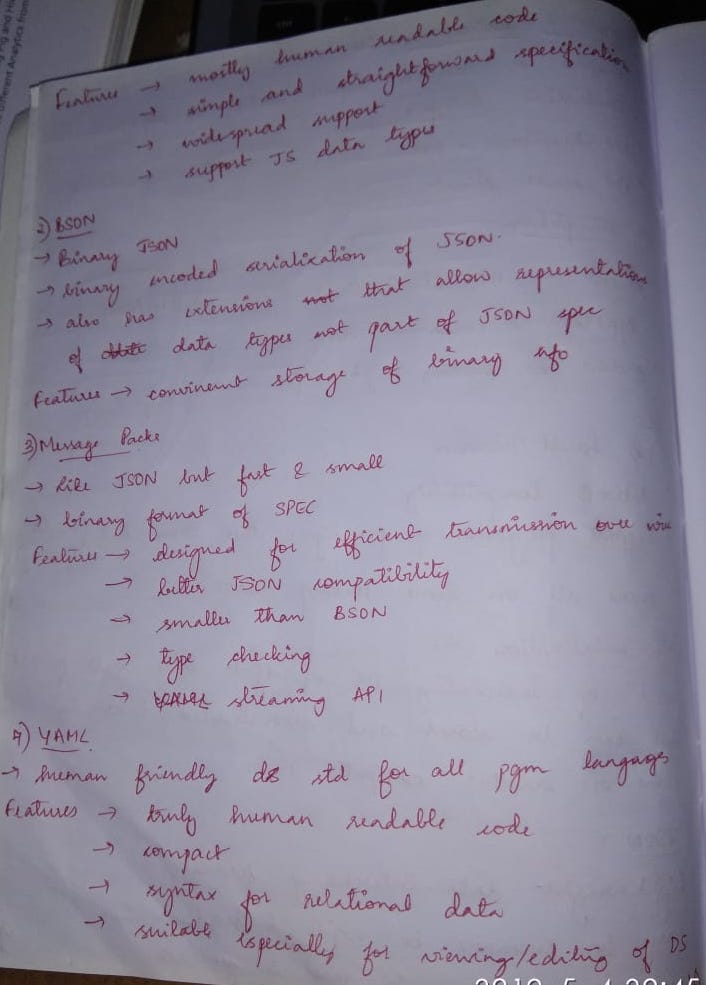 ing and Hi
different Analytics from
Features → mostly human readable code
→ simple and straightforward specification
→ widespread support
→ support JS data types
2) BSON
→ Binary JSON
→ binary encoded serialization of JSON.
→ also has extensions not that allow representation
of data types not part of JSON spec
Features → convineint storage of binary info
3) Message Packs
→ like JSON but fast & small
→ binary format of SPEC
Features → designed for efficient transmission over wire
→ better JSON compatibility
→ smaller than BSON
→ type checking
→ streaming API
4) YAML
→ human friendly ds std for all pgm langages
Features → truly human readable code
→ compact
→ syntax for relational data
→ suitable especially for viewing/editing of DS